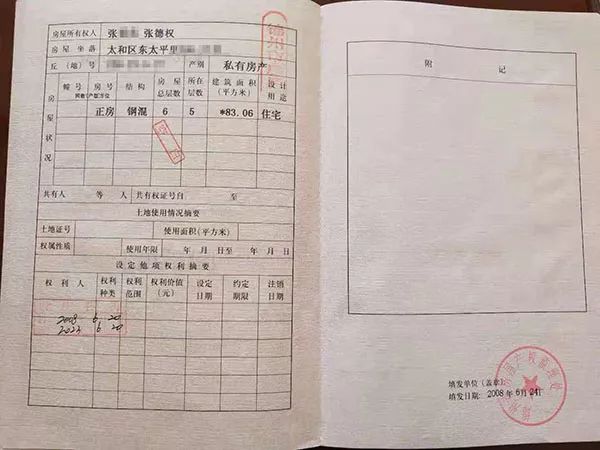 房屋所有权人 张 张德权
房屋坐落 太和区东太平里
丘（地）号 产别 私有房产
房屋状况
幢号 房号 结构 房屋总层数 所在层数 建筑面积（平方米） 设计用途
正房 钢混 6 5 *83.06 住宅
共有人 等 人 共有权证号自 至
土地使用情况摘要
土地证号 使用面积（平方米）
权属性质 使用年限 年 月 日至 年 月 日
设定他项权利摘要
权利人 权利种类 权利范围 权利价值（元） 设定日期 约定期限 注销日期
2008 6 20
6 20
附 记
填发单位（盖章）
填发日期: 2008 年 6 月 24 日